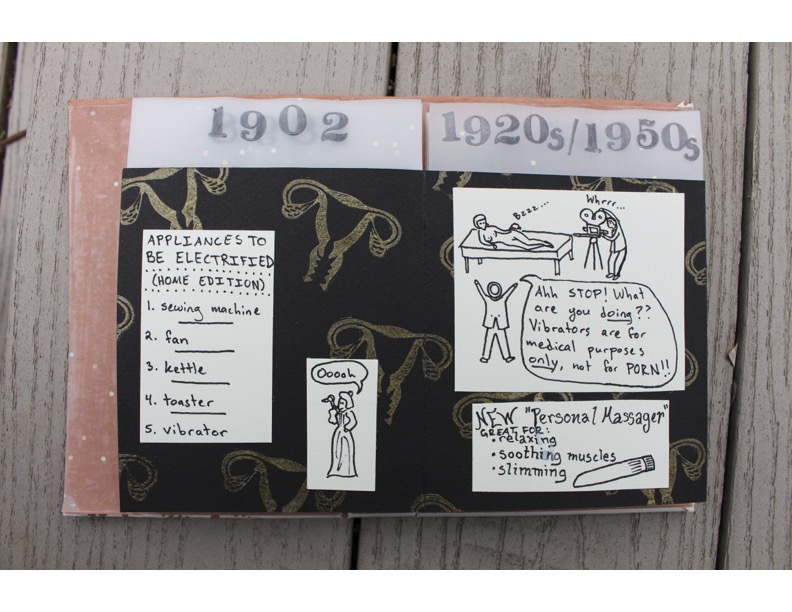 1902
APPLIANCES TO
BE ELECTRIFIED
(HOME EDITION)
1. sewing machine
2. fan
3. kettle
4. toaster
5. vibrator
Ooooh
1920s/1950s
Bzzz...
Whrrr...
Ahh STOP! What
are you doing??
Vibrators are for
medical purposes
only, not for PORN!!
NEW "Personal Massager"
GREAT FOR:
• relaxing
• soothing muscles
• slimming